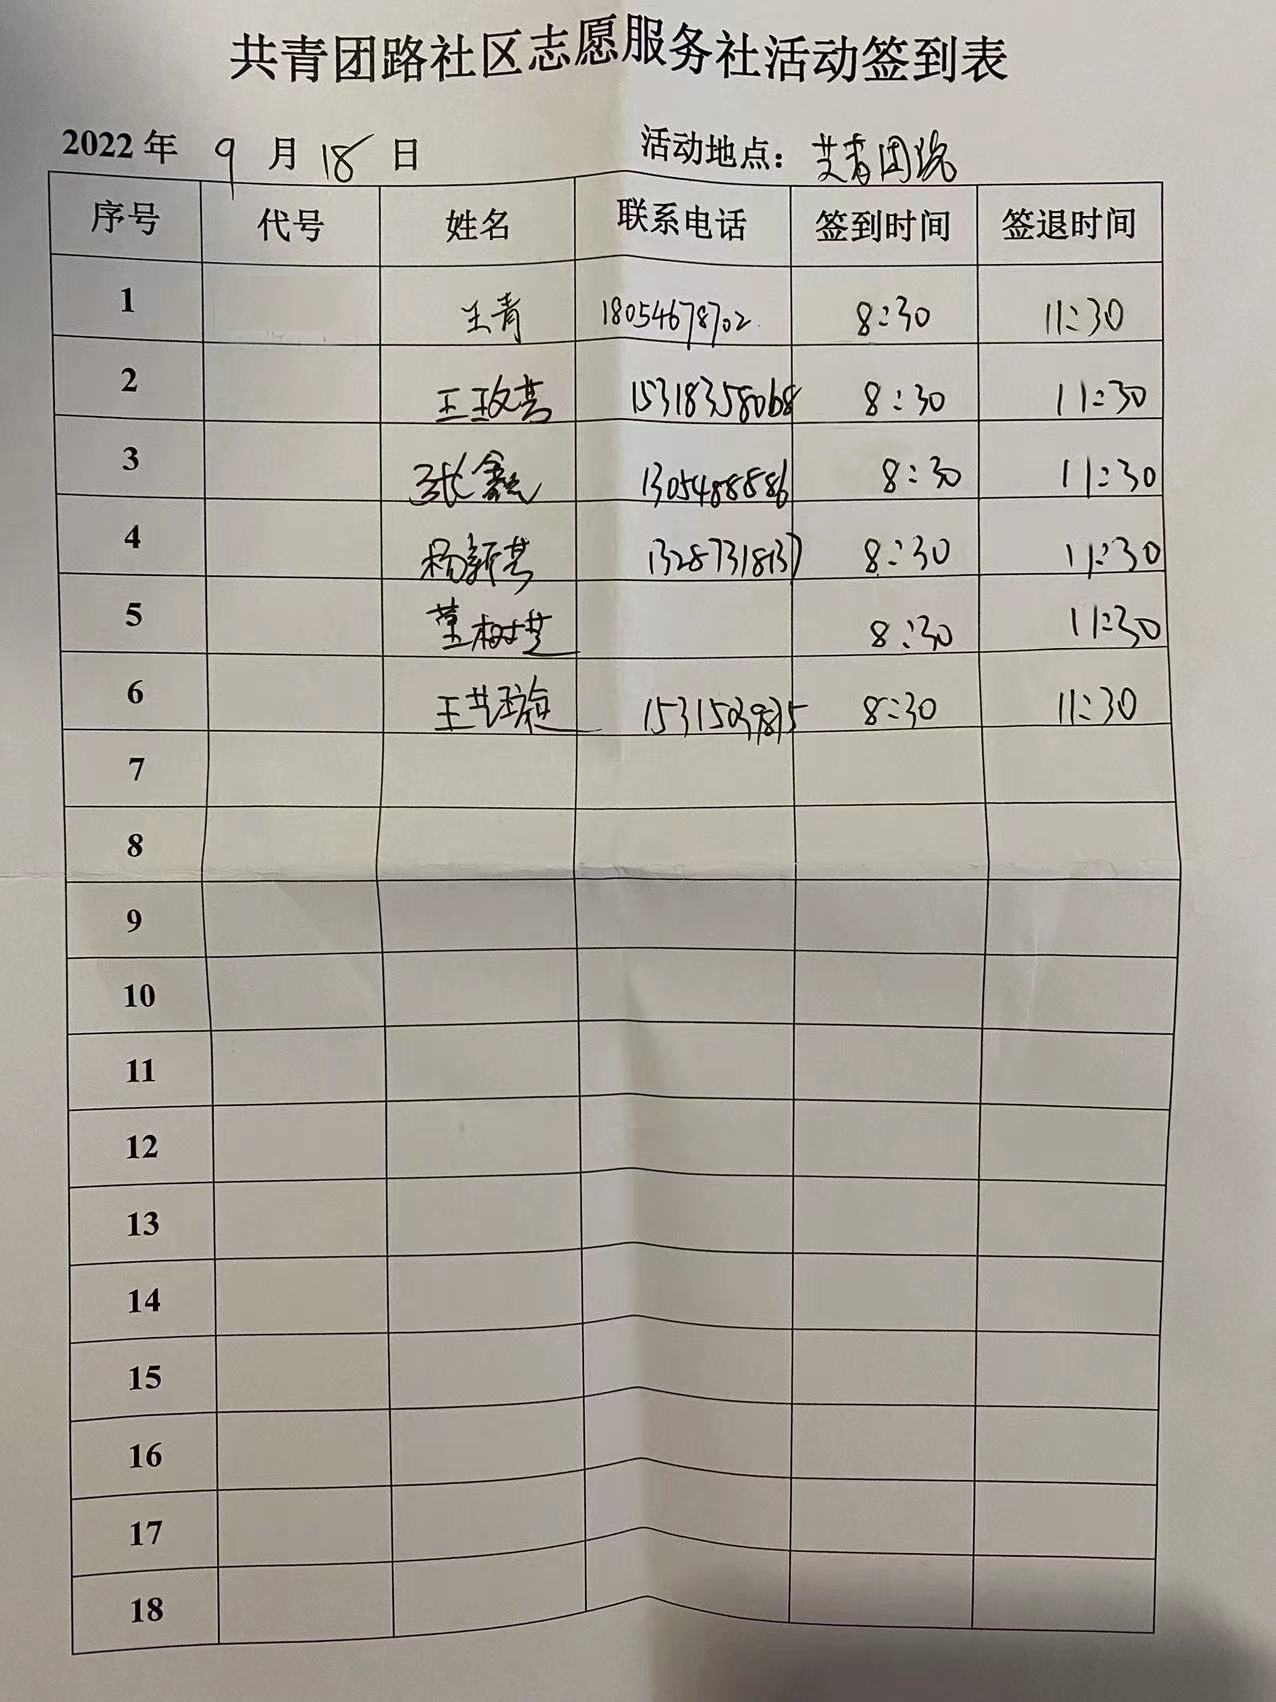 共青团路社区志愿服务社活动签到表
2022年 9 月 18 日 活动地点：共青团路
序号 代号 姓名 联系电话 签到时间 签退时间
1 王青 18054678702 8:30 11:30
2 王玫 15318358068 8:30 11:30
3 张鑫 1305488886 8:30 11:30
4 杨新芳 13287318137 8:30 11:30
5 董树芝 8:30 11:30
6 王艺璇 8:30 11:30
7
8
9
10
11
12
13
14
15
16
17
18